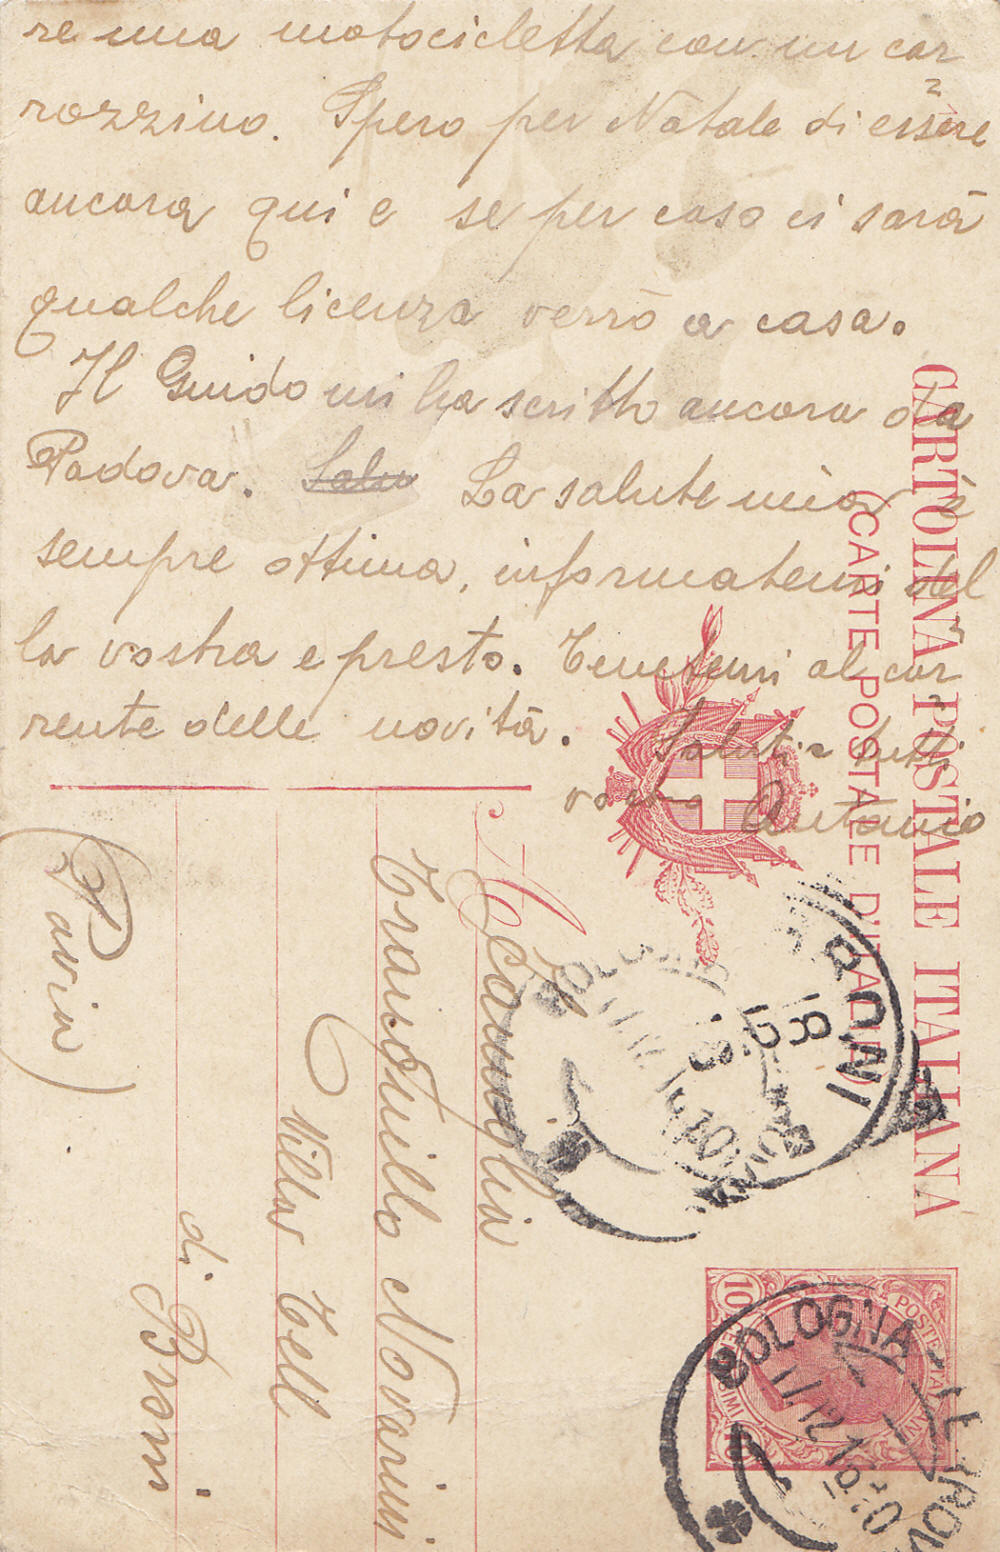 re una motocicletta con un car
rozzino. Spero per Natale di essere
ancora qui e se per caso ci sarà
qualche licenza verrò a casa.
Il Guido mi ha scritto ancora da
Padova. Salu La salute mia è
sempre ottima, informatemi del
la vostra e presto. Tenetemi al cor
rente delle novità. Saluti a tutti
vostro Antonio
CARTOLINA POSTALE ITALIANA
(CARTE POSTALE D'ITALIE)
A Famiglia
Tranquillo Novarini
Villa Tell
di Broni
(Pavia)
BRONI
18
BOLOGNA
ROMA
10
POSTE ITALIANE
BOLOGNA